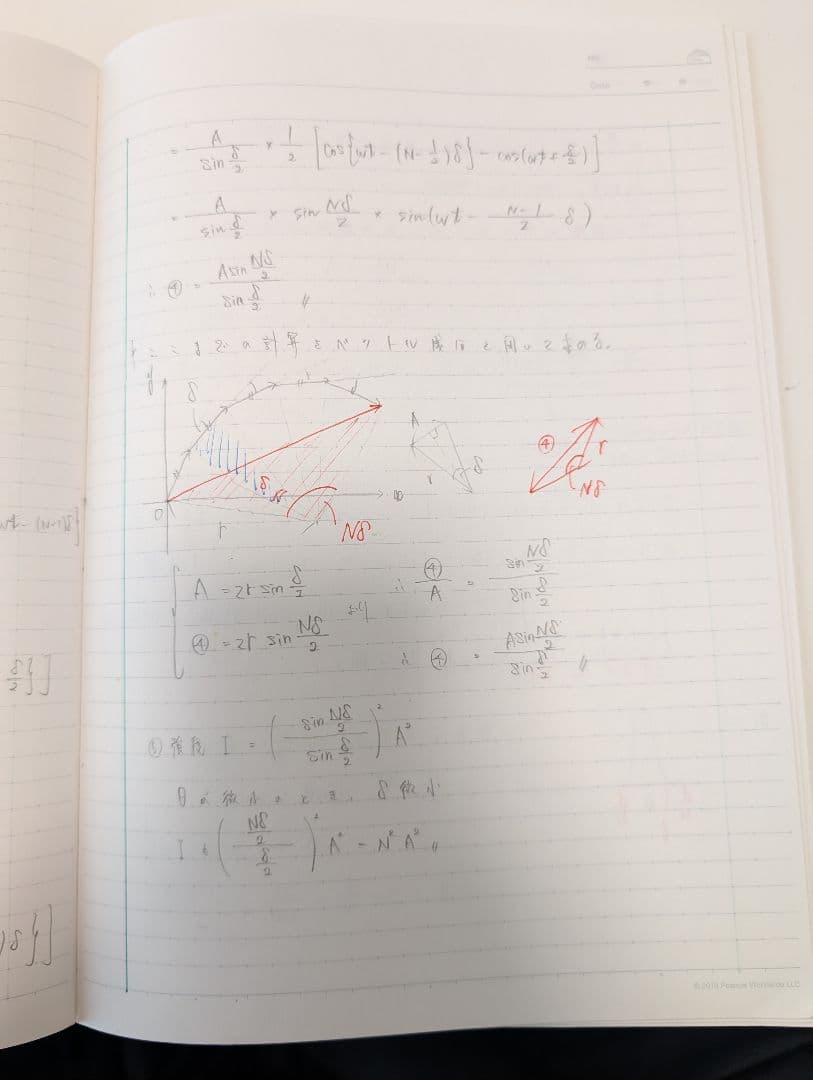 No.
Date
= A/(sin δ/2) × 1/2 [cos{ωt - (N - 1/2)δ} - cos(ωt + δ/2)]
= A/(sin δ/2) × sin Nδ/2 × sin(ωt - (N-1)/2 δ)
∴ ④ = (A sin Nδ/2)/(sin δ/2) //
ここまでの計算をベクトル成分を用いて求める。
y δ
A δ r δ
④ r Nδ
O δ r Nδ
A = 2r sin δ/2
④ = 2r sin Nδ/2 より
∴ ④/A = (sin Nδ/2)/(sin δ/2)
∴ ④ = (A sin Nδ/2)/(sin δ/2) //
⑤ 強度 I = ((sin Nδ/2)/(sin δ/2))² A²
θが微小のとき、δ微小
I ≒ ((Nδ/2)/(δ/2))² A² = N² A² //
ωt - (N-1)δ}
δ/2}]
)δ}]